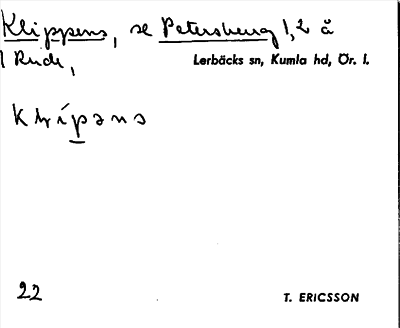 Klippens, se Petersberg 1,2 å
1 Rude,
Lerbäcks sn, Kumla hd, Ör. l.
22
T. ERICSSON